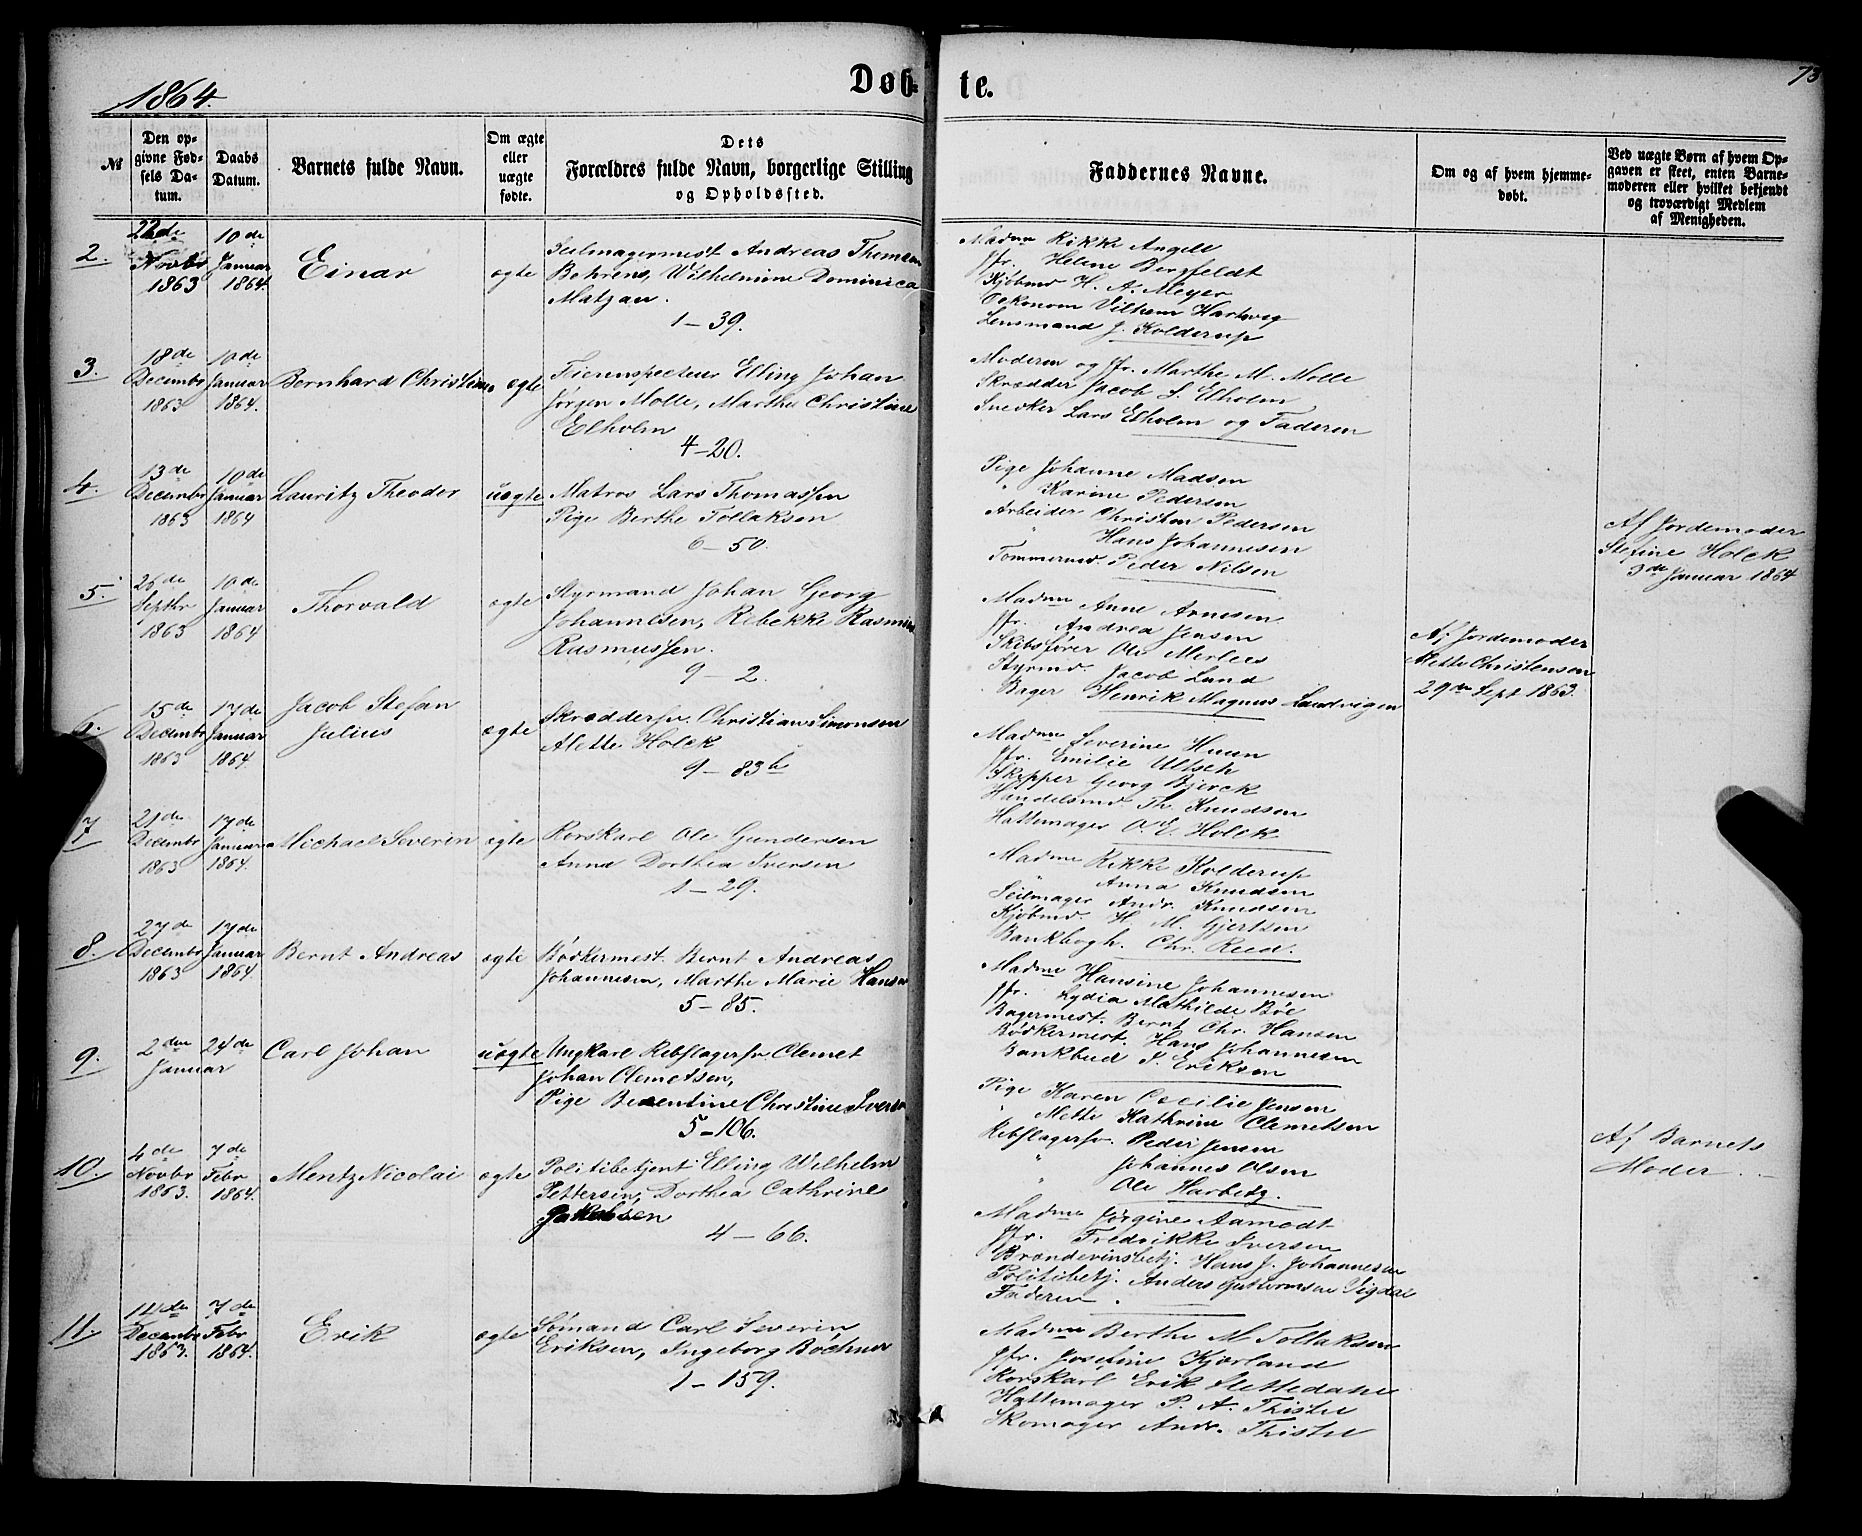 1864.
Døb-
te.
73
№
Den op-
givne Fød-
sels Da-
tum.
Daabs
Datum.
Barnets fulde Navn.
Om ægte
eller
uægte
fødte.
Dets
Forældres fulde Navn, borgerlige Stilling
og Opholdssted.
Faddernes Navne.
Om og af hvem hjemme-
døbt.
Ved uægte Børn af hvem Op-
gaven er skeet, enten Barne-
moderen eller hvilket bekjendt
og troværdigt Medlem
af Menigheden.
2.
22de
Novbr
1863
10de
Januar
1864.
Einar
ægte
Seilmagermest Andreas Thomsen
Behrens, Wilhelmine Dominica
Matzan.
1–39.
Madme Rikke Angell
Jfr. Helene Bergfeldt
Kjøbmd H. A. Meyer
Oekonom Vilhem Hartvig
Lensmand J. Kolderup
3.
18de
Decembr
1863
10de
Januar
1864.
Bernhard Christian
ægte
Jørgen Molle, Marthe Christine
Elholm
4–20.
Moderen og Jfr. Marthe M. Molle
Skrædder Jacob S. Elholm
Snedker Lars Elholm og Faderen
4.
13de
Decembr
1863
10de
Januar
1864
Lauritz Theodor
uægte
Matros Lars Thomassen
Pige Berthe Tollaksen
6–50.
Pige Johanne Madsen
" Karine Pedersen
Arbeider Christen Pedersen
" Hans Johannesen
Tømmermd. Peder Nilsen
Af Jordemoder
Stefine Holck
3de Januar 1864
5.
26de
Septbr
1863
10de
Januar
1864
Thorvald
ægte
Styrmand Johan Georg
Johannesen, Rebekke Rasmine
Rasmussen.
9–2.
Madme Anne Arnesen
Jfr. Andrea Jensen
Skibsfører Ole Merlees
Styrmd. Jacob Lund
Bager Henrik Magnus Landvigen
Af Jordemoder
Mette Christensen
29de Sept. 1863.
6.
15de
Decembr
1863
17de
Januar
1864.
Jacob Stefan
Julius
ægte
Skræddersv. Christian Simonsen
Alette Holck
9–83b
Madme Severine Huun
Jfr. Emilie Ultsch
Skipper Georg Bjerck
Handelsmd. Th. Knudsen
Hattemager O. E. Holck
7
21de
Decembr
1863
17de
Januar
1864.
Michael Severin
ægte
Korskarl Ole Gundersen
Anna Dorthea Iversen
1–29.
Madme Rikke Kolderup
" Anna Knudsen
Seilmager Andr. Knudsen
Kjøbmd. H. M. Gjertsen
Bankbogh. Chr. Reed.
8.
27de
Decembr
1863
17de
Januar
1864
Bernt Andreas
ægte
Bødkermest. Bernt Andreas
Johannesen, Marthe Marie Hansen
5–85.
Madme Hansine Johannesen
Jfr. Lydia Mathilde Bøe
Bagermest. Bernt Chr. Hansen
Bødkermest. Hans Johannesen
Bankbud P. Eriksen
9.
2den
Januar
24de
Carl Johan
uægte
Ungkarl Rebslagersv. Clemet
Johan Clemetsen,
Pige Berentine Christine Iversen
5–106.
Pige Karen Cecilie Jensen
" Mette Kathrine Clemetsen
Rebslagersv. Peder Jensen
" Johannes Olsen
" Ole Harbitz.
Af Barnets
Moder.
10.
4de
Novbr
1863.
7de
Febr
1864.
Mentz Nicolai
ægte
Politibetjent Elling Wilhelm
Pettersen, Dorthea Cathrine
Jakobsen
4–66.
Madme Jørgine Aamodt
Jfr. Fredrikke Iversen
Brændevinsbetj. Hans J. Johannesen
Politibetj. Anders Guttormsen Vigdal
Faderen.
11.
14de
Decembr
1863.
7de
Febr
1864.
Erik
ægte
Sømand Carl Severin
Eriksen, Ingeborg Bøchner
1–159.
Madme Berthe M. Tollaksen
Jfr. Josefine Kjorland
Korskarl Erik Slettedahl
Hattemager P. A. Thistel
Skomager Andr. Thistel